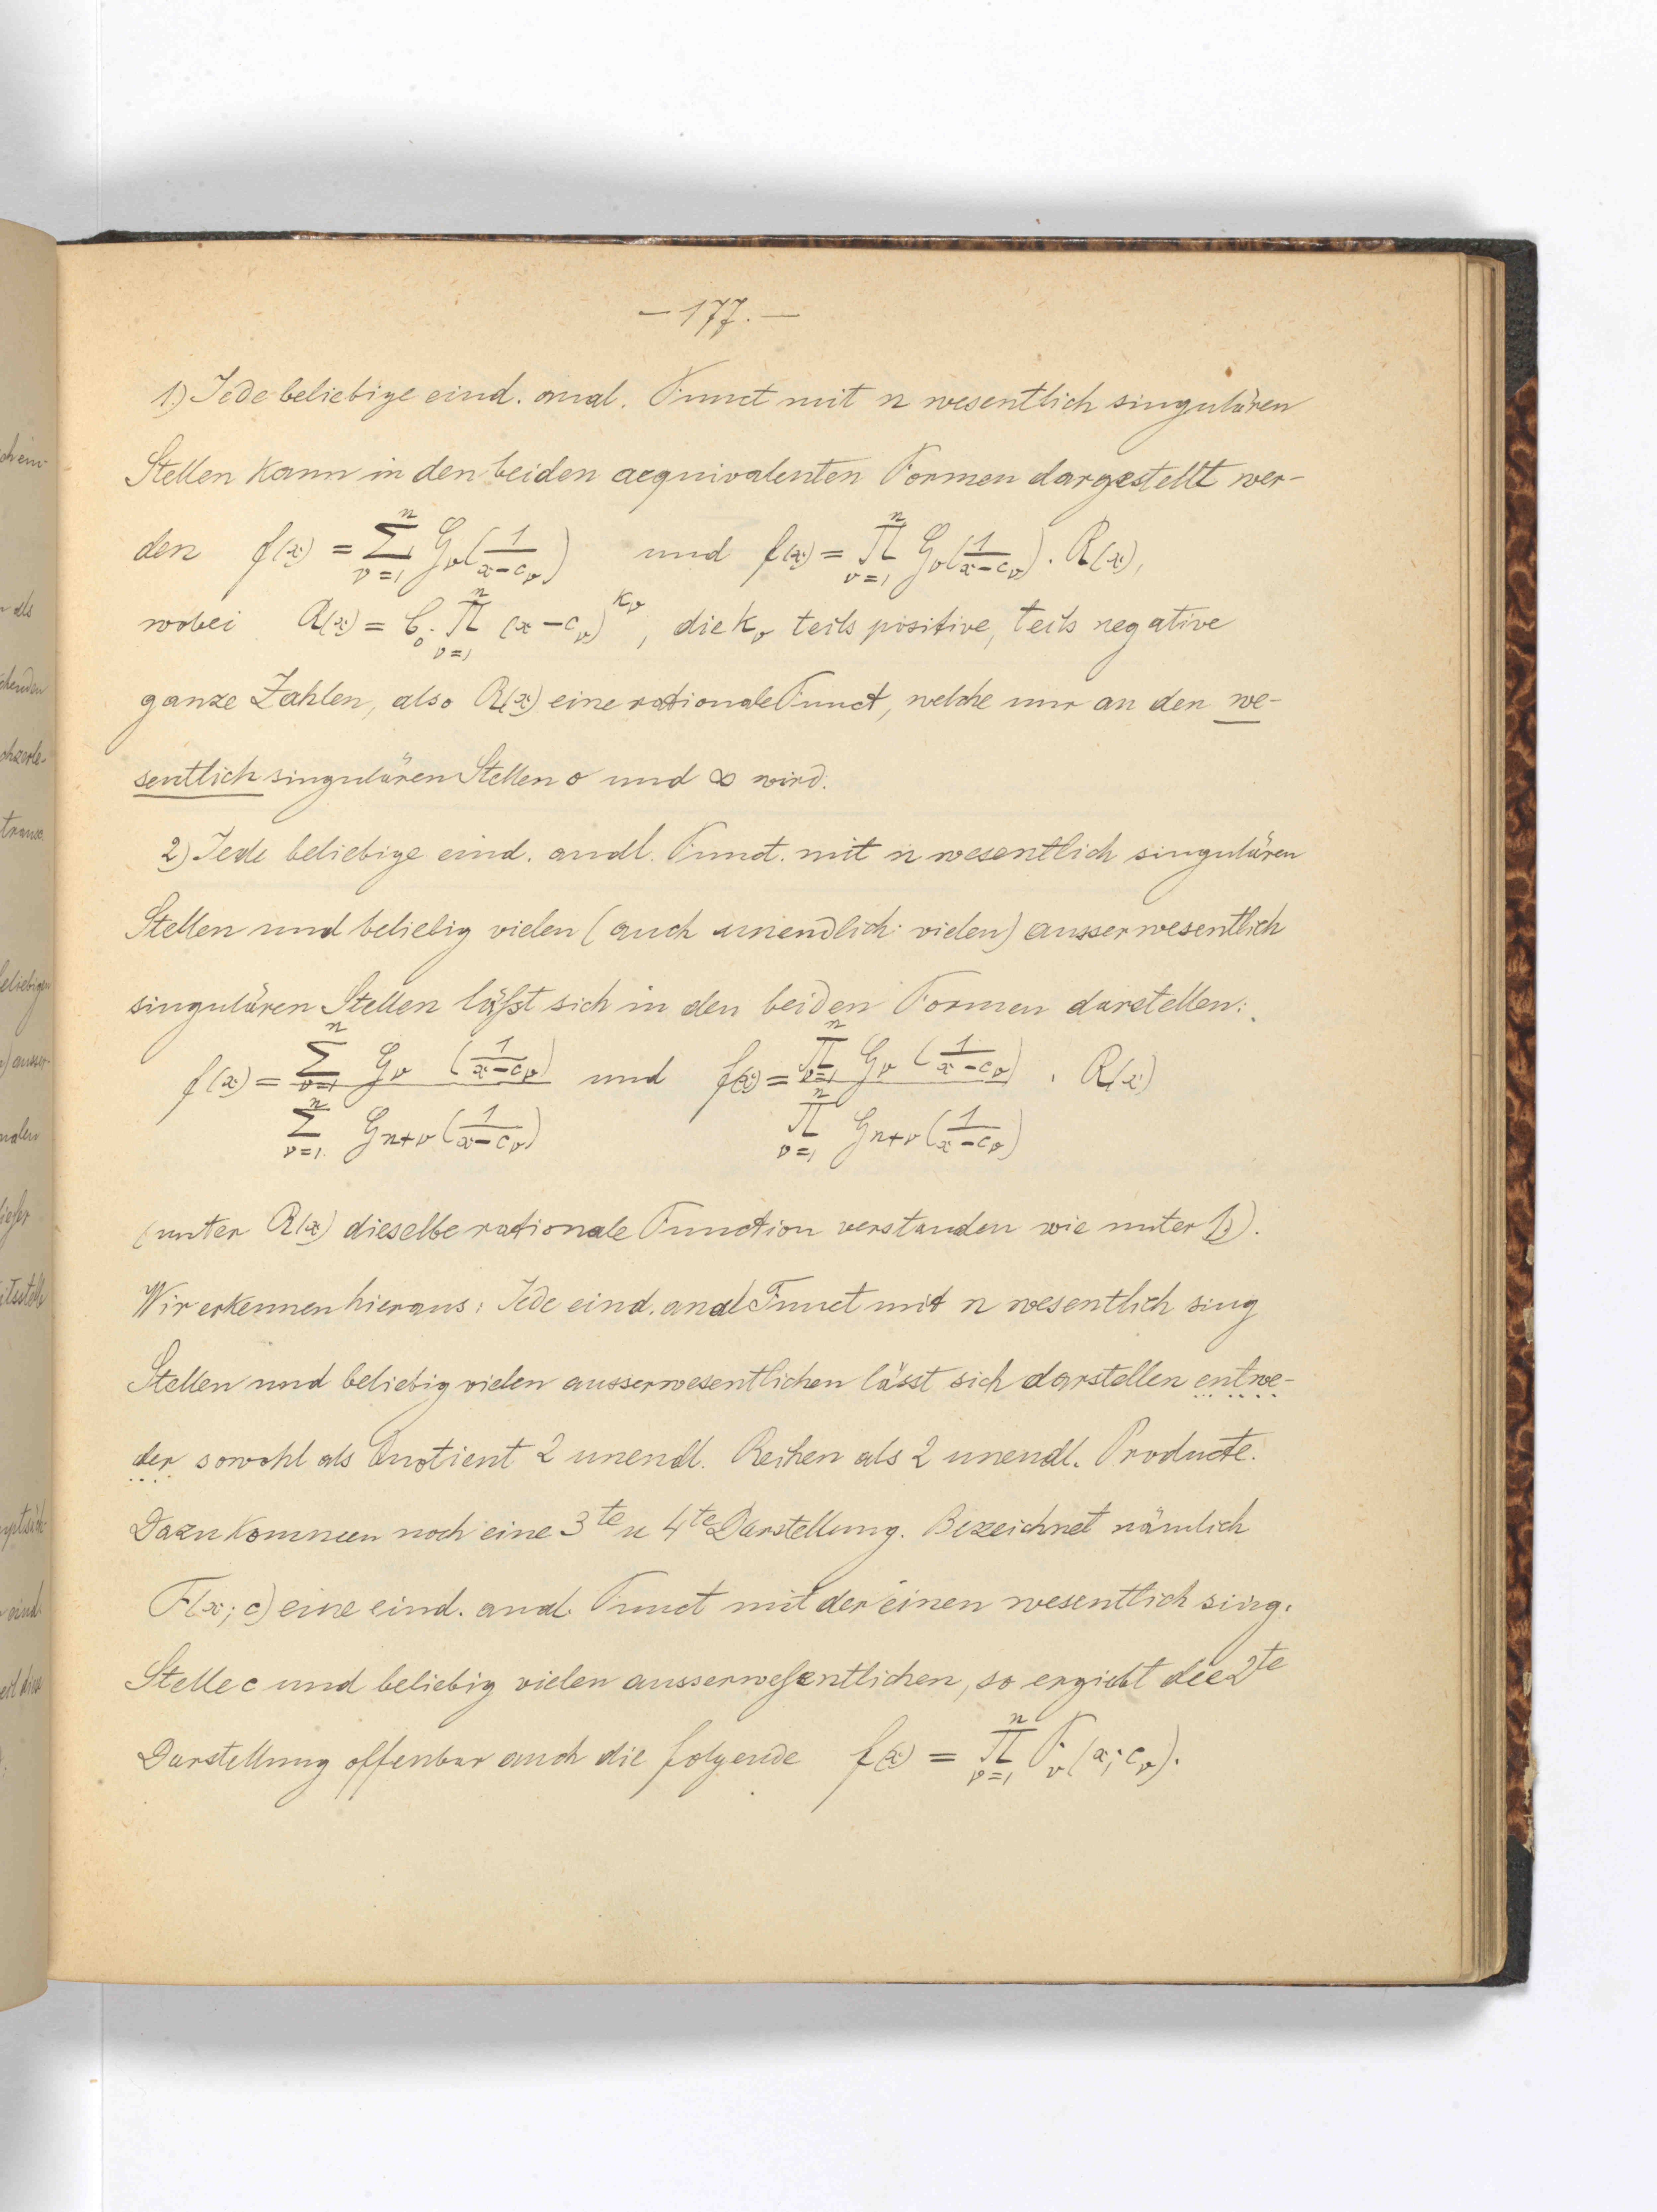 – 177. –
1.) Jede beliebige eind. anal. Funct mit n wesentlich singulären
Stellen kann in den beiden aequivalenten Formen dargestellt wer-
den f(x) = \sum_{ν=1}^{n} G_ν(\frac{1}{x-c_ν}) und f(x) = \prod_{ν=1}^{n} G_ν(\frac{1}{x-c_ν}) . R(x),
wobei R(x) = C_0 . \prod_{ν=1}^{n} (x-c_ν)^{k_ν}, die k_ν teils positive, teils negative
ganze Zahlen, also R(x) eine rationale Funct, welche nur an den we-
sentlich singulären Stellen 0 und ∞ wird.
2) Jede beliebige eind. anal. Funct. mit n wesentlich singulären
Stellen und beliebig vielen (auch unendlich vielen) ausserwesentlich
singulären Stellen läßt sich in den beiden Formen darstellen:
f(x) = \frac{\sum_{ν=1}^{n} G_ν (\frac{1}{x-c_ν})}{\sum_{ν=1}^{n} G_{n+ν} (\frac{1}{x-c_ν})} und f(x) = \frac{\prod_{ν=1}^{n} G_ν (\frac{1}{x-c_ν})}{\prod_{ν=1}^{n} G_{n+ν} (\frac{1}{x-c_ν})} . R(x)
(unter R(x) dieselbe rationale Function verstanden wie unter 1.).
Wir erkennen hieraus: Jede eind. anal Funct mit n wesentlich sing
Stellen und beliebig vielen ausserwesentlichen lässt sich darstellen entwe-
der sowohl als Quotient 2 unendl. Reihen als 2 unendl. Producte.
Dazu kommen noch eine 3te u 4te Darstellung. Bezeichnet nämlich
F(x; c) eine eind. anal. Funct mit der einen wesentlich sing.
Stelle c und beliebig vielen ausserwesentlichen, so ergiebt die 2te
Darstellung offenbar auch die folgende f(x) = \prod_{ν=1}^{n} F_ν(x; c_ν).